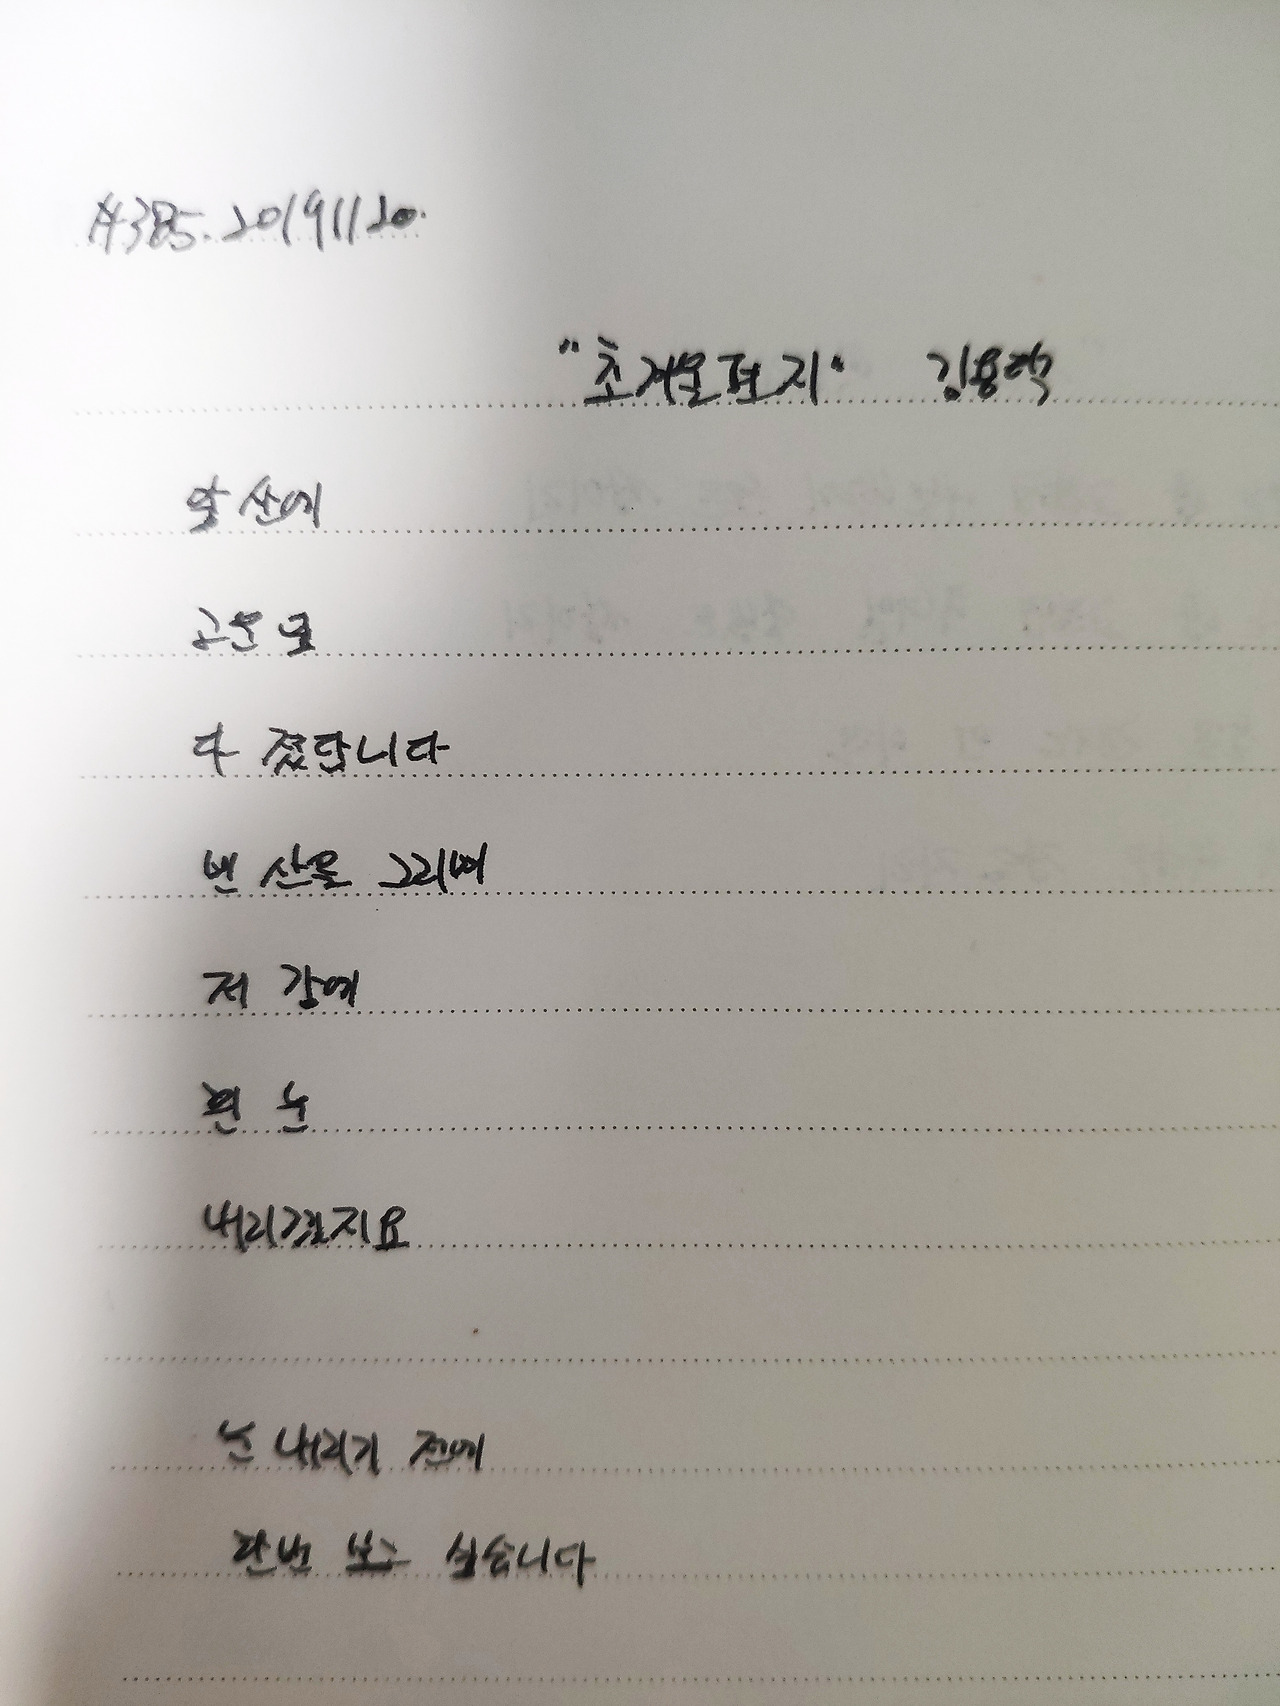 #385. 20191120.
"초겨울편지" 김용택
앞산에
고운 물
다 졌답니다
빈 산을 그리며
저 강에
흰 눈
내리겠지요
눈 내리기 전에
한번 보고 싶습니다